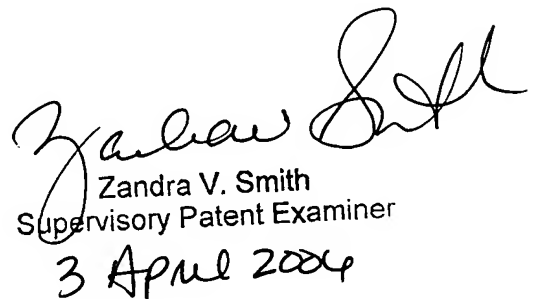 Zandra Smith
Zandra V. Smith
Supervisory Patent Examiner
3 April